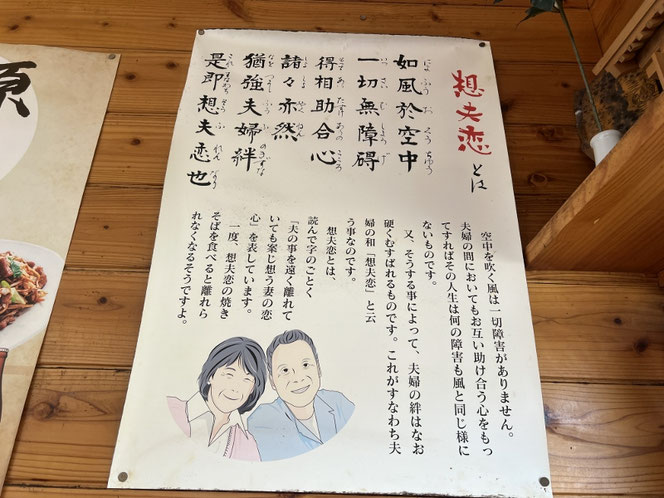 想夫恋とは
如風於空中
にょふうおくうちゅう
一切無障碍
いっさいむしょうげ
得相助合心
諸々亦然
猶強夫婦絆
是即想夫恋也
空中を吹く風は一切障害がありません。
夫婦の間においてもお互い助け合う心をもっ
てすればその人生は何の障害も風と同じ様に
ないものです。
又、そうする事によって、夫婦の絆はなお
硬くむすばれるものです。これがすなわち夫
婦の和「想夫恋」と云
う事なのです。
想夫恋とは、
読んで字のごとく
『夫の事を遠く離れて
いても案じ想う妻の恋
心』を表しています。
一度、想夫恋の焼き
そばを食べると離れら
れなくなるそうですよ。